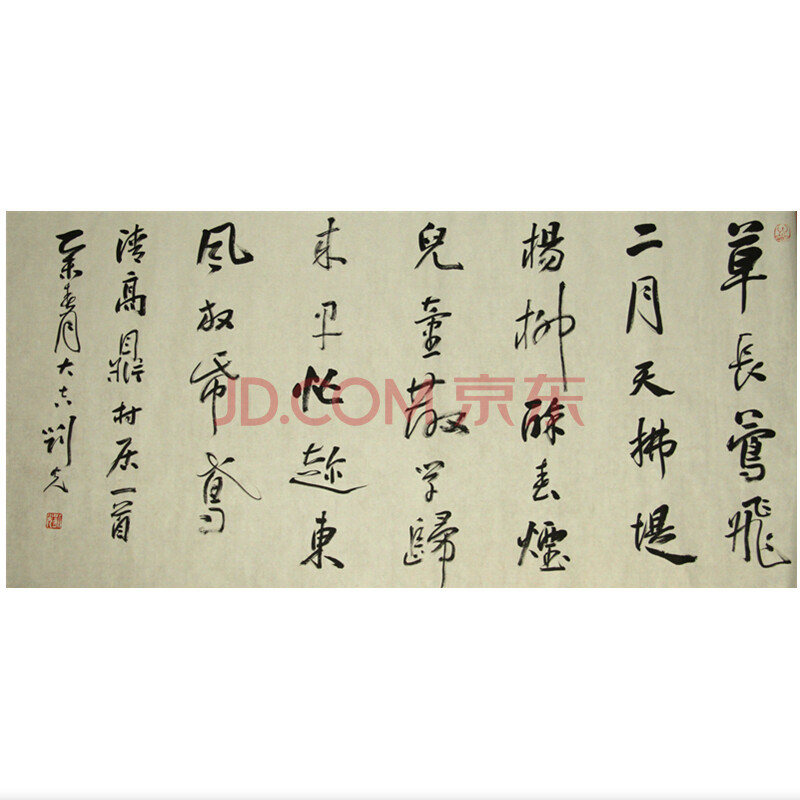 草長鶯飛
二月天拂堤
楊柳醉春煙
兒童散学歸
来早忙趂東
風放帋鳶
清高鼎村居一首
乙未春月大吉劉光
JD.COM 京东